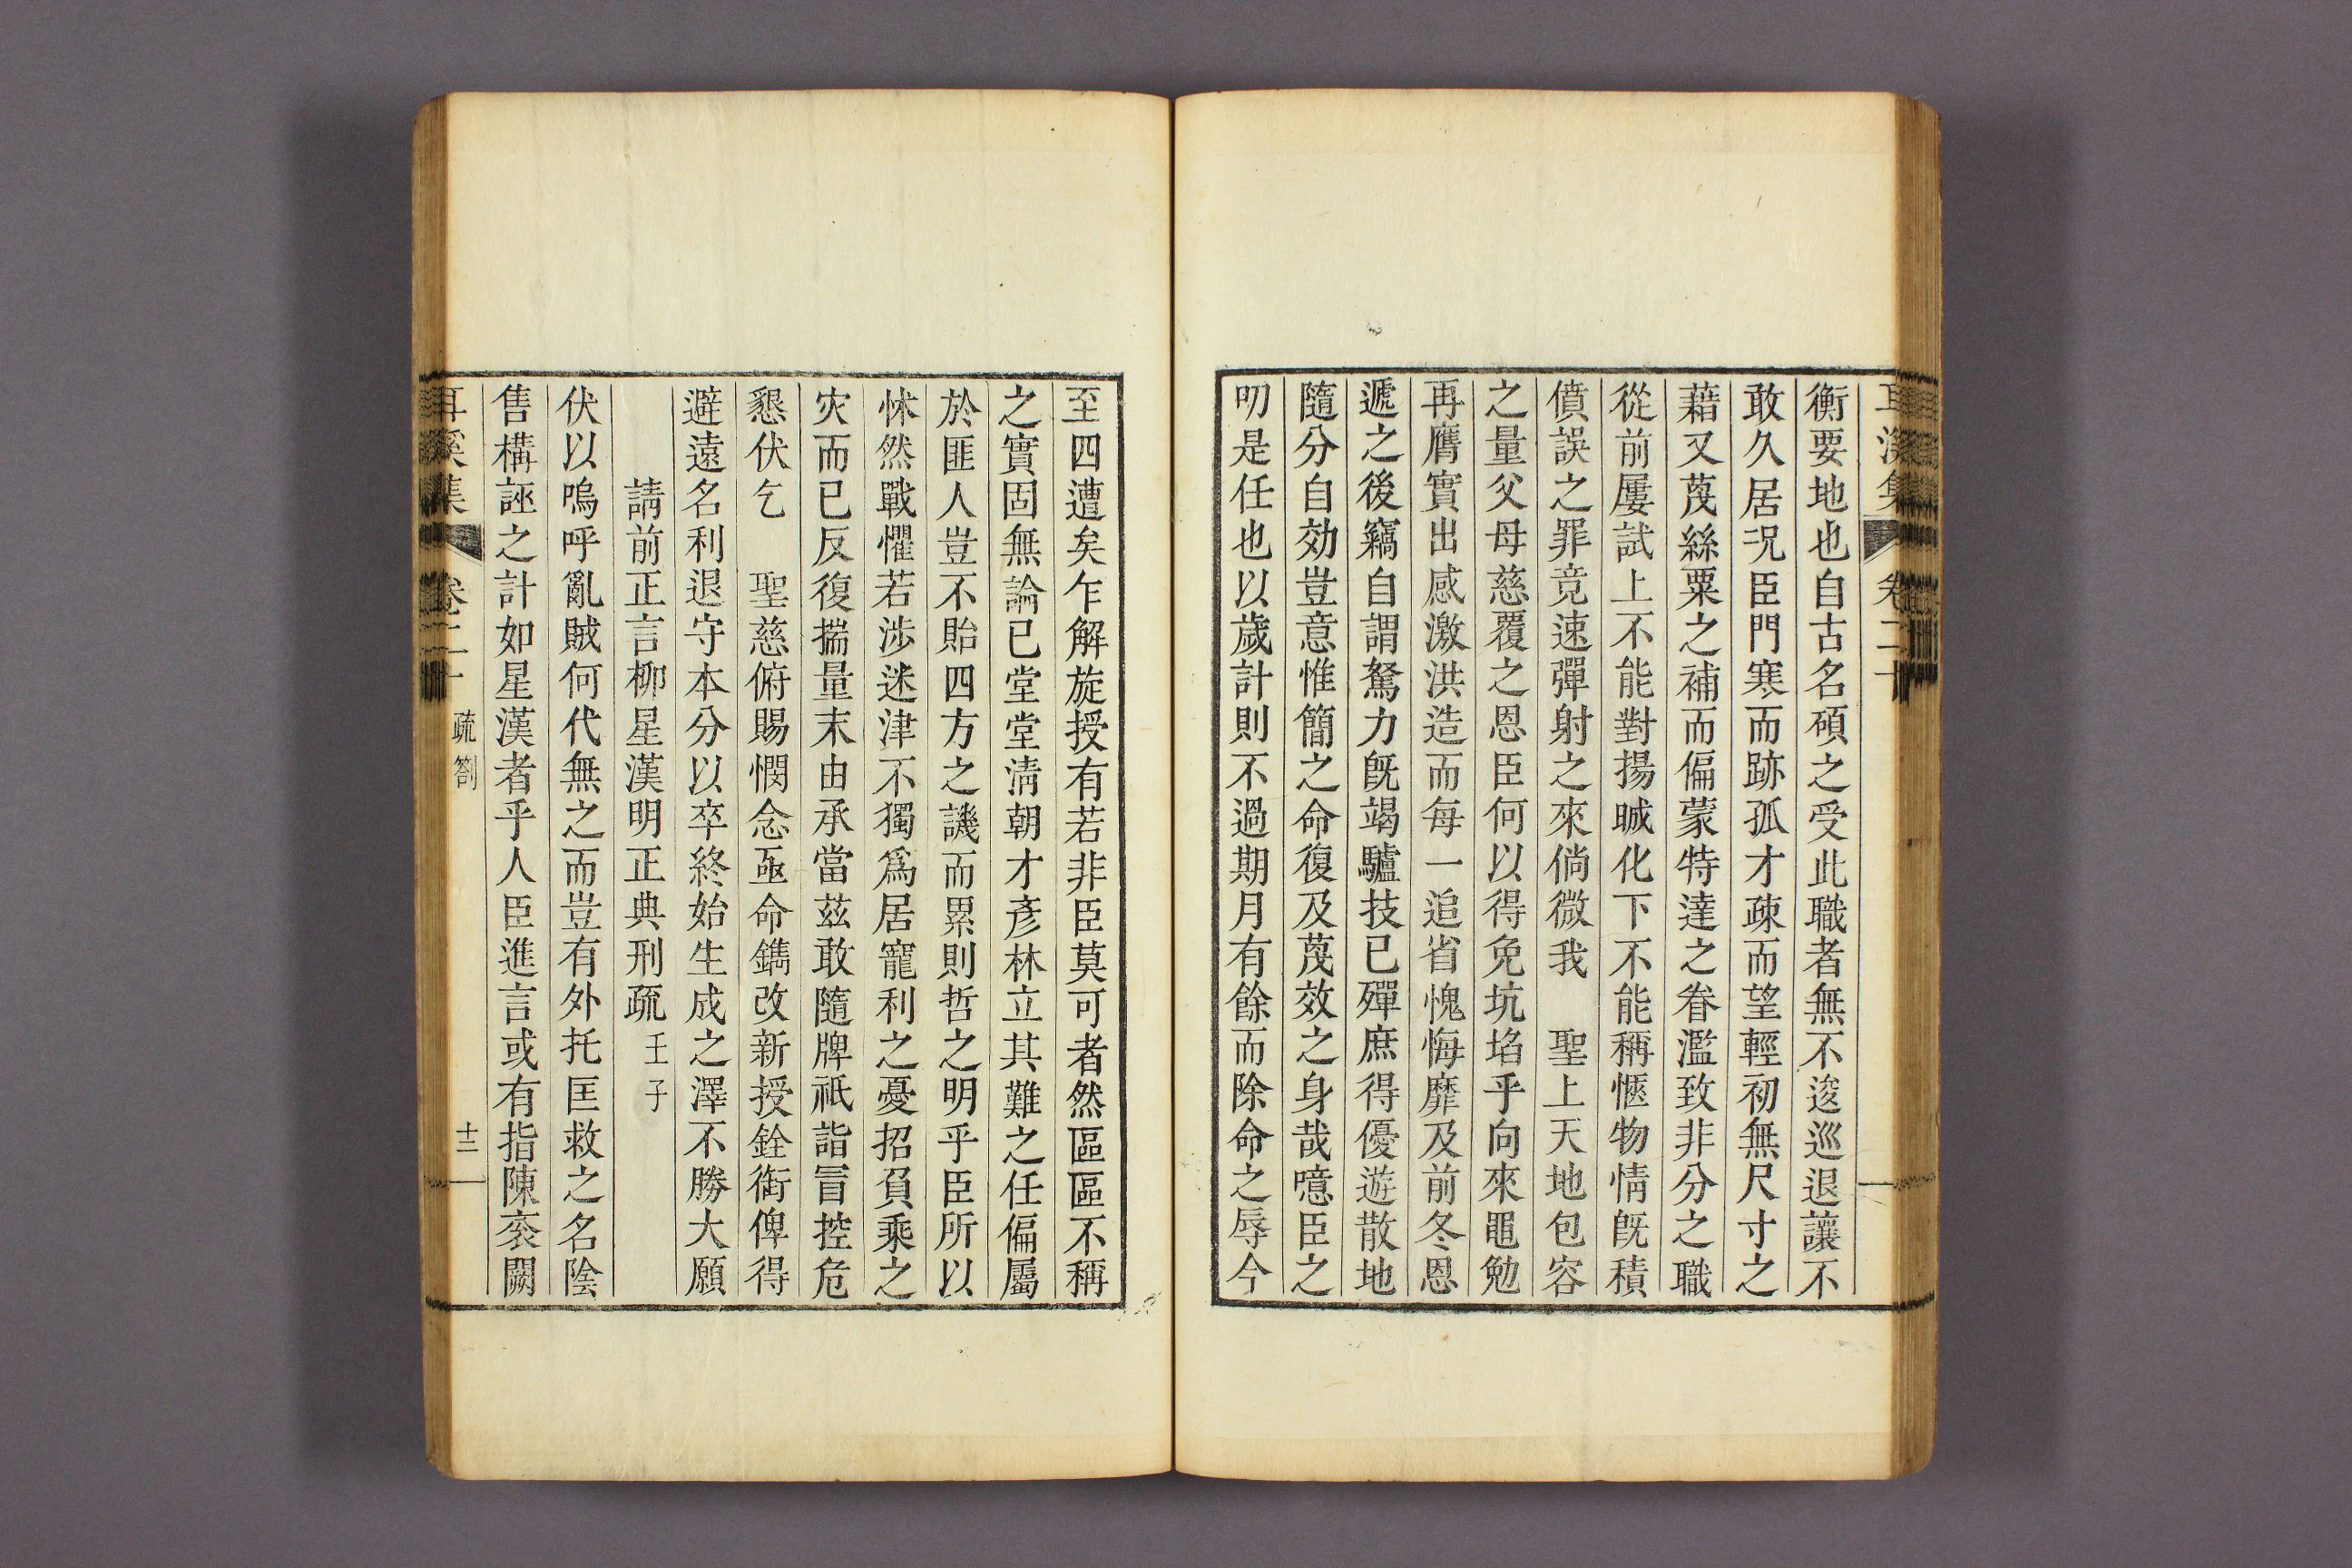 耳溪集 卷二十
衡要地也自古名碩之受此職者無不逡巡退讓不
敢久居况臣門寒而跡孤才疎而望輕初無尺寸之
藉又蔑絲粟之補而偏蒙特達之眷濫致非分之職
從前屢試上不能對揚瑊化下不能稱愜物情旣積
僨誤之罪竟速彈射之來倘微我 聖上天地包容
之量父母慈覆之恩臣何以得免坑埳乎向來黽勉
再膺實出感激洪造而每一追省愧悔靡及前冬恩
遞之後竊自謂駑力旣竭驢技已殫庶得優遊散地
隨分自効豈意惟簡之命復及蔑效之身哉噫臣之
叨是任也以歲計則不過期月有餘而除命之辱今
至四遭矣乍解旋授有若非臣莫可者然區區不稱
之實固無論已堂堂淸朝才彥林立其難之任偏屬
於匪人豈不貽四方之譏而累則哲之明乎臣所以
怵然戰懼若涉迷津不獨爲居寵利之憂招負乘之
灾而已反復揣量末由承當玆敢隨牌祇詣冒控危
懇伏乞 聖慈俯賜憫念亟命鐫改新授銓銜俾得
避遠名利退守本分以卒終始生成之澤不勝大願
請前正言柳星漢明正典刑疏 壬子
伏以嗚呼亂賊何代無之而豈有外托匡救之名陰
售構誣之計如星漢者乎人臣進言或有指陳袞闕
耳溪集 卷二十 疏箚 十二